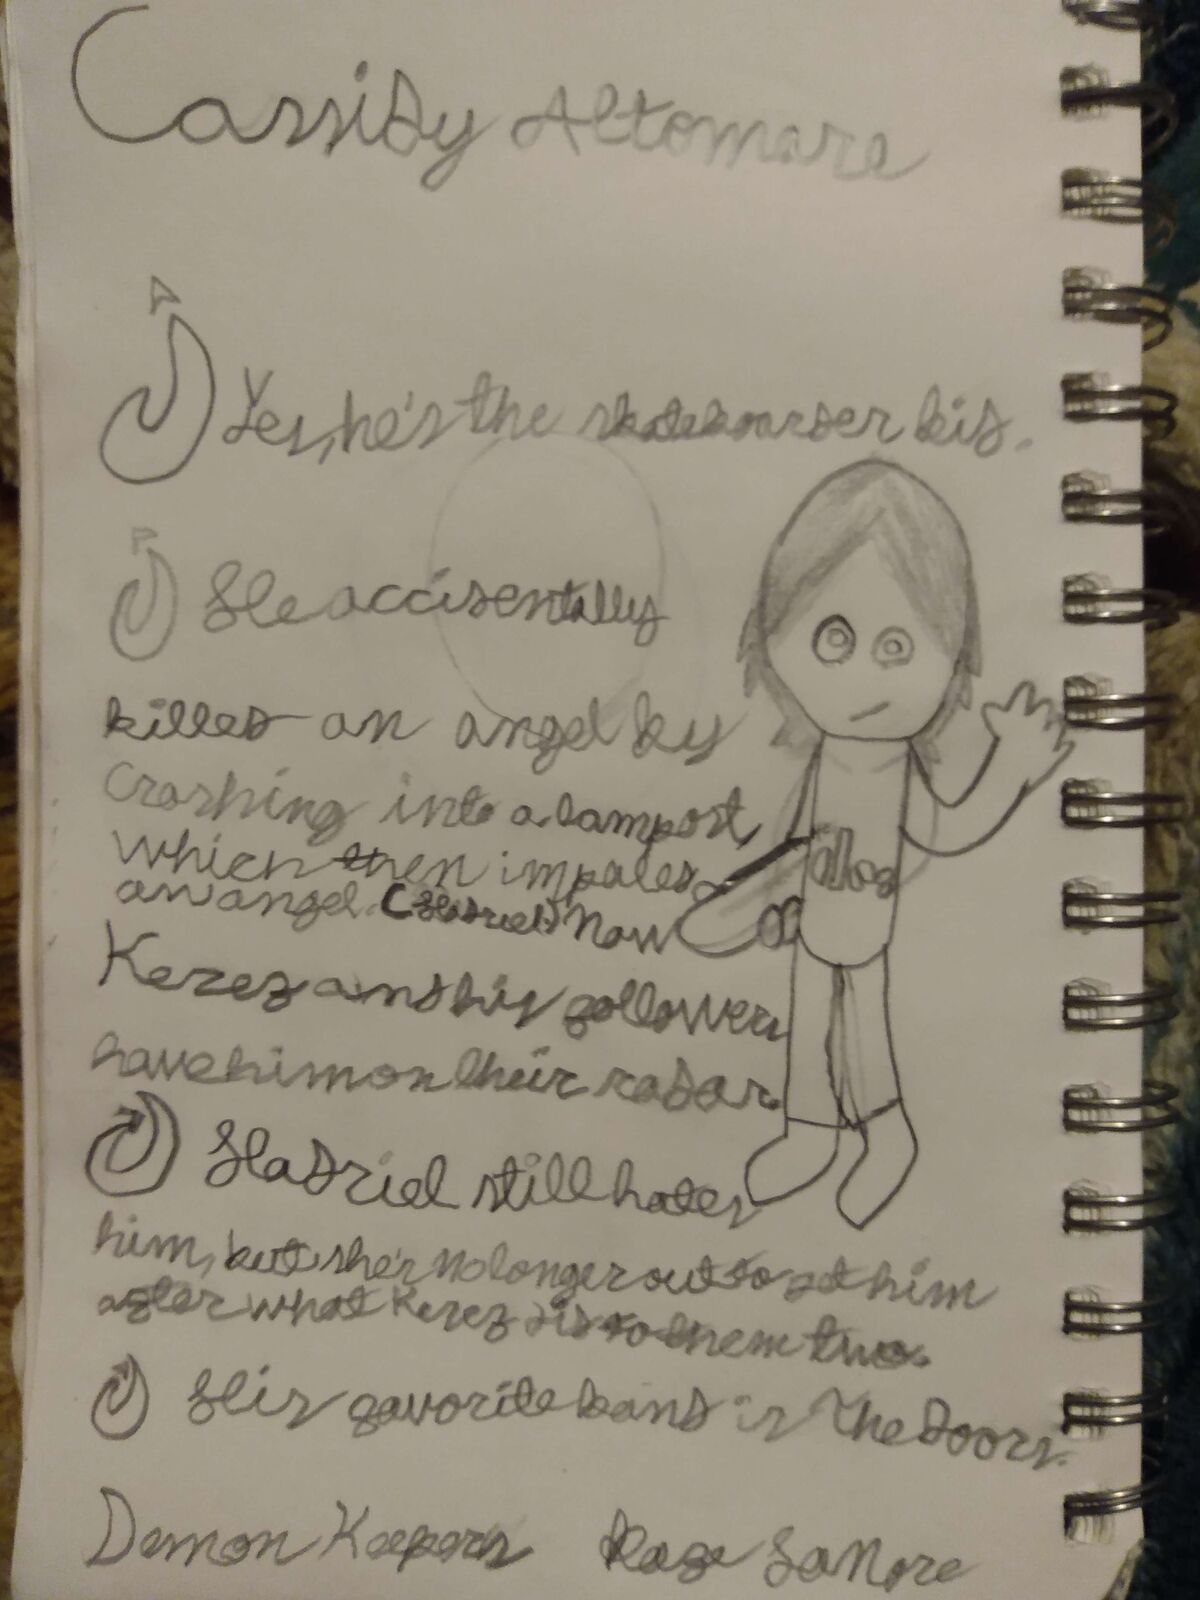 Cassidy Altomare
Yes, he's the skateboarder kid.
He accidentally
killed an angel by
Crashing into a lampost,
which then impaled
an angel. (Hadriel) Now
Kerez and his followers
have him on their radar.
Hadriel still hates
him, but she's no longer out to get him
after what Kerez did to them two.
His favorite band is The Doors.
Demon Keepers